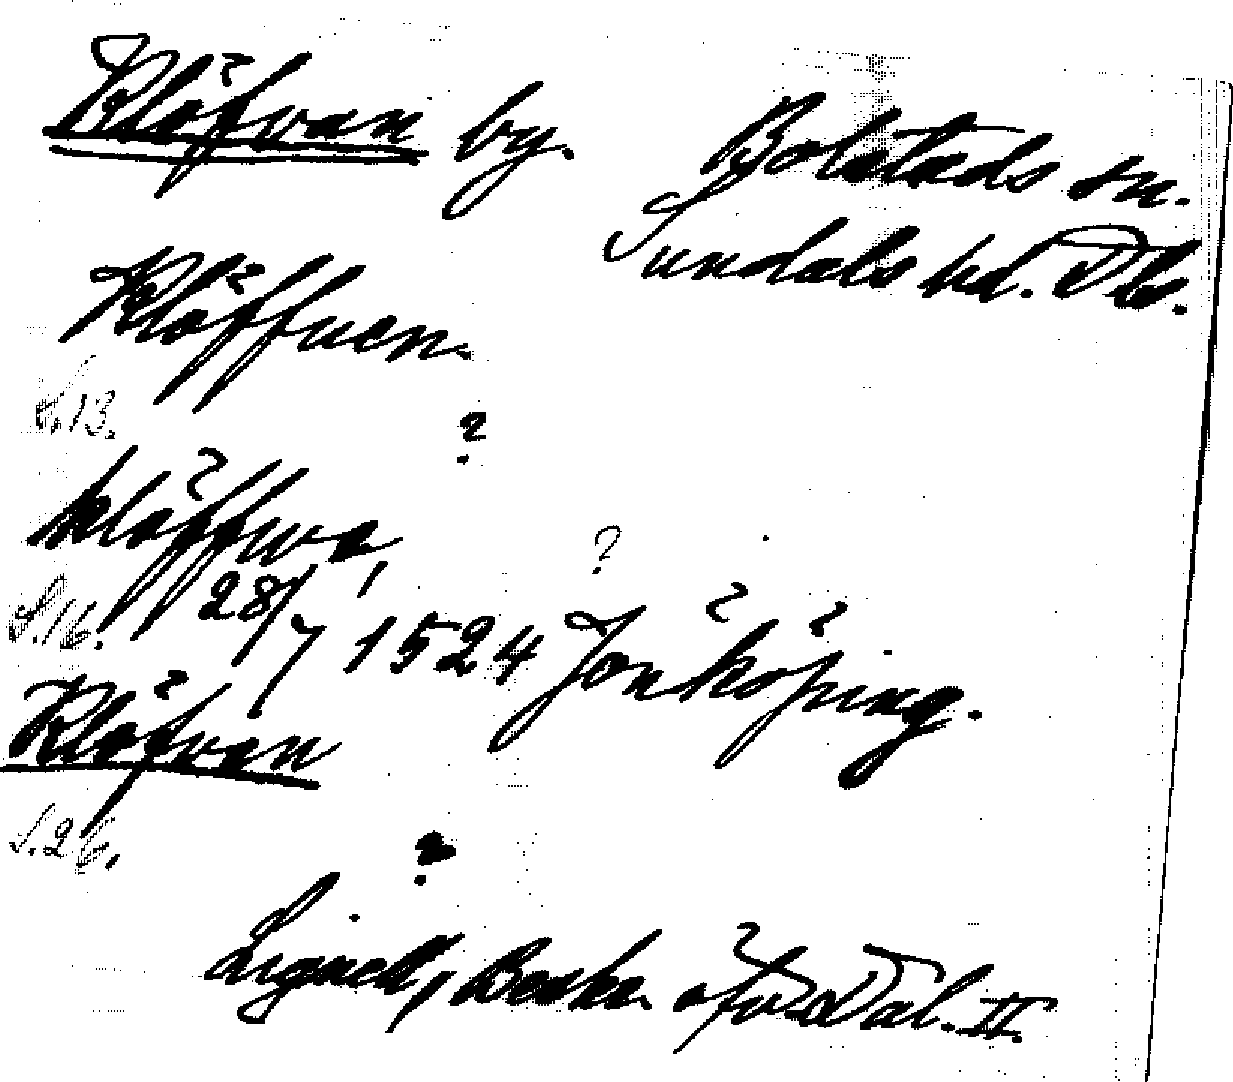 Klöfvan by. Bolstads sn.
Sundals hd. Db.
Klöffuen.
S. 13. ?
klöffwa, ?
S. 16. 28/7 1524 Jönköping.
Klöfvan
S. 26. ?
Lignell, Beskr. öfv. Dal. II.